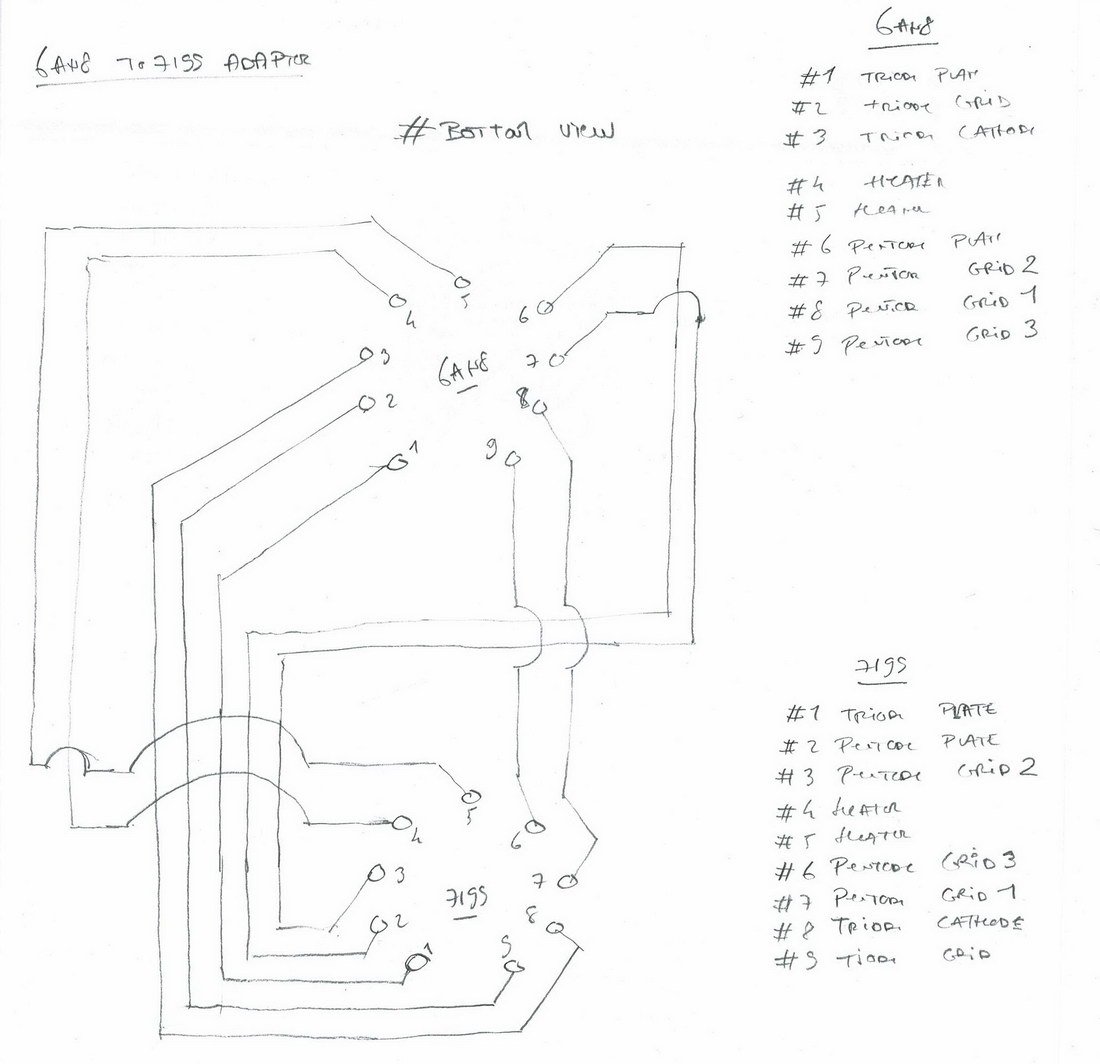 6AN8 To 7199 ADAPTER
# BOTTOM VIEW
6AN8
#1 TRIODE PLATE
#2 TRIODE GRID
#3 TRIODE CATHODE
#4 HEATER
#5 HEATER
#6 PENTODE PLATE
#7 PENTODE GRID 2
#8 PENTODE GRID 1
#9 PENTODE GRID 3
4
5
6
3
6AN8
7
2
8
1
9
7199
#1 TRIODE PLATE
#2 PENTODE PLATE
#3 PENTODE GRID 2
#4 HEATER
#5 HEATER
#6 PENTODE GRID 3
#7 PENTODE GRID 1
#8 TRIODE CATHODE
#9 TIODE GRID
5
4
6
3
7199
7
2
8
1
9